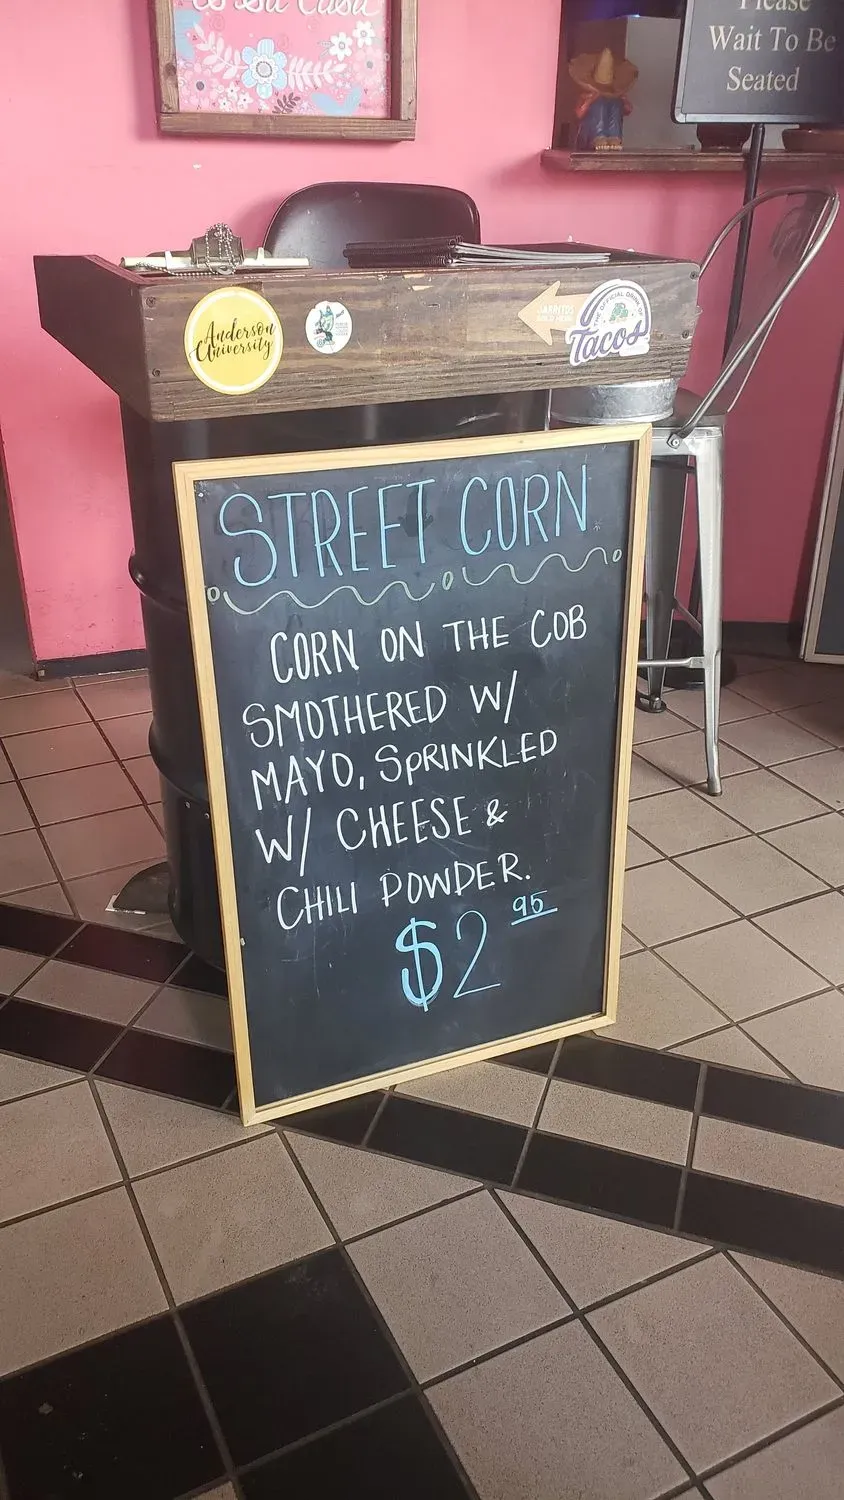 Su Casa
Please
Wait To Be
Seated
Anderson
University
JARRITOS
THE OFFICIAL DRINK OF
Tacos
STREET CORN
CORN ON THE COB
SMOTHERED W/
MAYO, SPRINKLED
W/ CHEESE &
CHILI POWDER.
$2 95